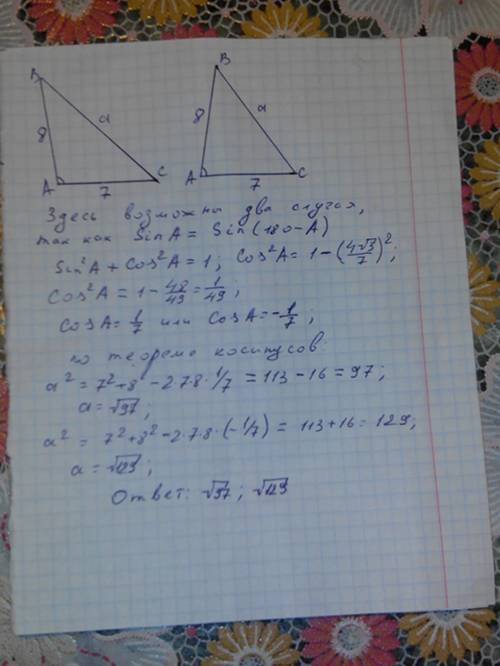 B
B
8
a
8
a
A
7
C
A
7
C
Здесь возможны два случая,
так как SinA = Sin(180-A)
Sin²A + Cos²A = 1; Cos²A = 1-(4√3/7)²;
Cos²A = 1 - 48/49 = 1/49;
CosA = 1/7 или CosA = -1/7;
по теореме косинусов:
a² = 7²+8² - 2·7·8·1/7 = 113 - 16 = 97;
a = √97;
a² = 7²+8² - 2·7·8·(-1/7) = 113+16 = 129;
a = √129;
Ответ: √97; √129